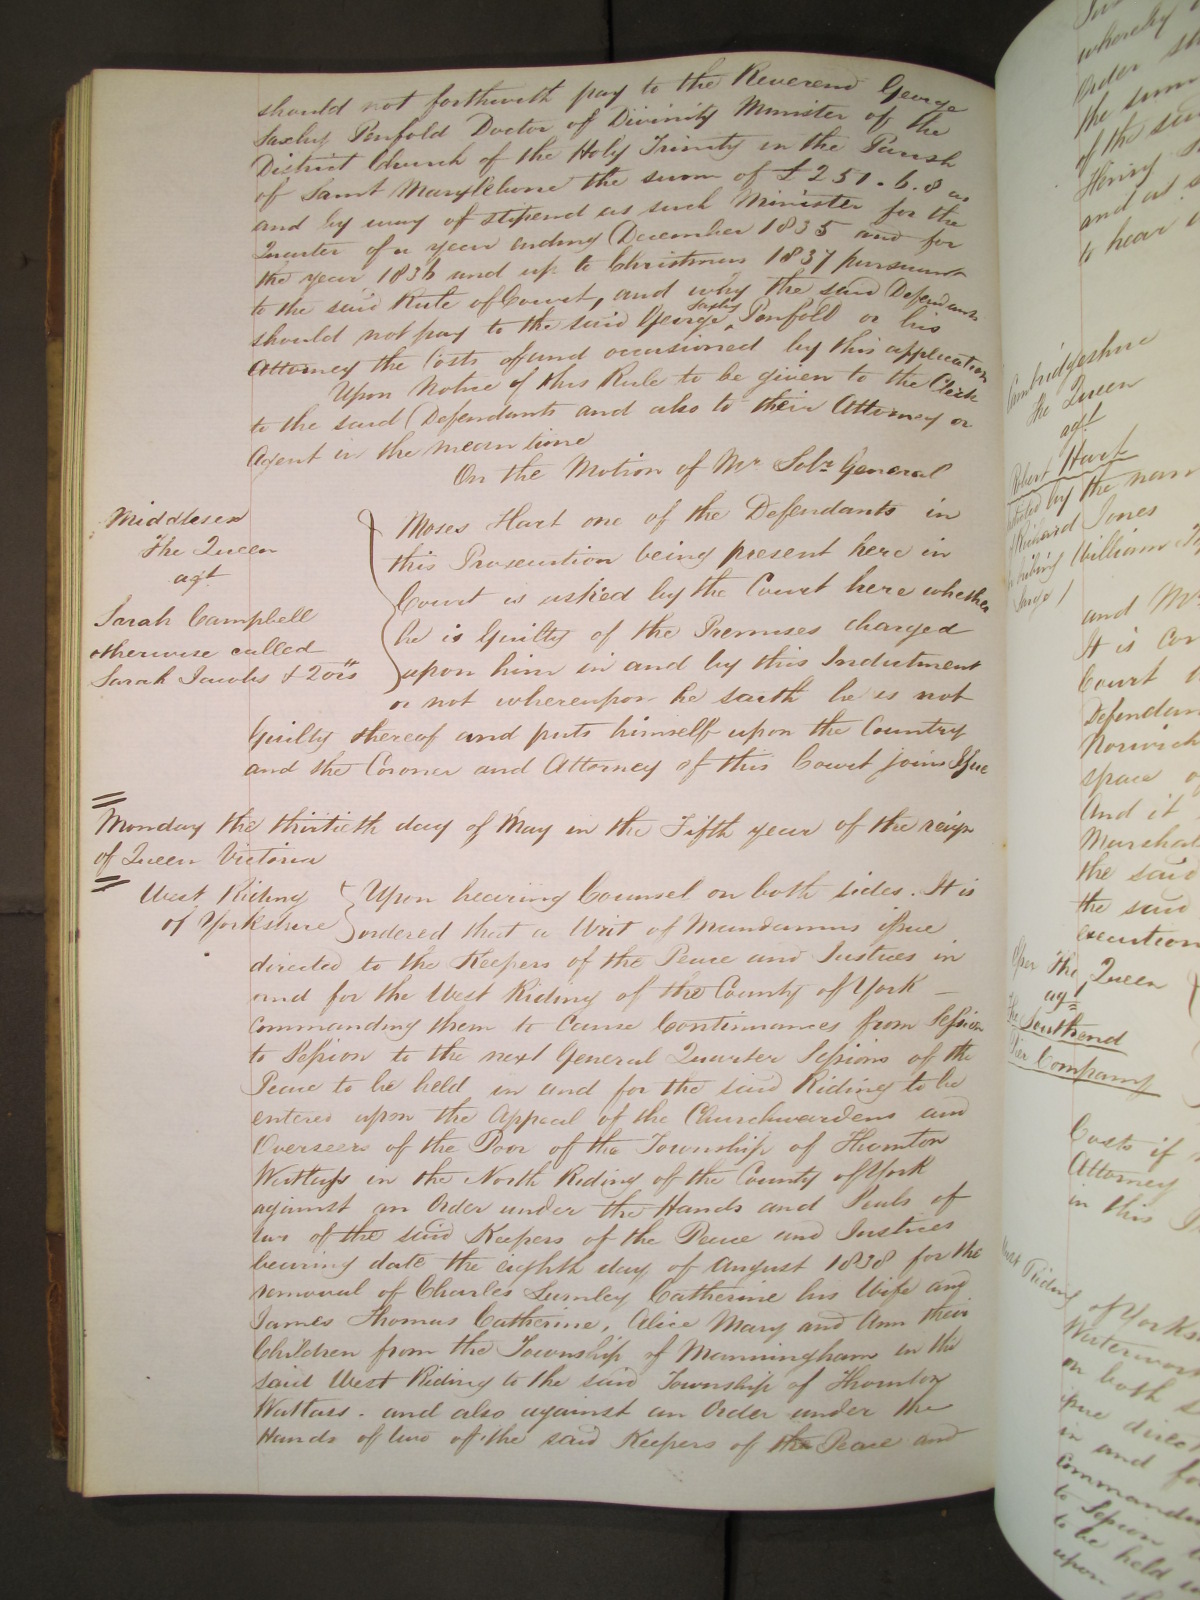 should not forthwith pay to the Reverend George
Saxby Penfold Doctor of Divinity Minister of the
District Church of the Holy Trinity in the Parish
of Saint Marylebone the sum of £251.6.8 as
and by way of stipend as such Minister for the
Quarter of a year ending December 1835 and for
the year 1836 and up to Christmas 1837 pursuant
to the said Rule of Court, and why the said Defendants
should not pay to the said George Saxby Penfold or his
Attorney the Costs of and occasioned by this application
Upon Notice of this Rule to be given to the Clerk
to the said Defendants and also to their Attorney or
Agent in the mean time
On the Motion of Mr Solr General
Middlesex
The Queen
agt
Sarah Campbell
otherwise called
Sarah Jacobs & 2 ors
Moses Hart one of the Defendants in
this Prosecution being present here in
Court is asked by the Court here whether
he is Guilty of the Premises charged
upon him in and by this Indictment
or not whereupon he saith he is not
Guilty thereof and puts himself upon the Country
and the Coroner and Attorney of this Court joins Issue
Monday the thirtieth day of May in the Fifth year of the reign
of Queen Victoria
West Riding
of Yorkshire
Upon hearing Counsel on both sides. It is
ordered that a Writ of Mandamus issue
directed to the Keepers of the Peace and Justices in
and for the West Riding of the County of York —
commanding them to cause Continuances from Session
to Session to the next General Quarter Sessions of the
Peace to be held in and for the said Riding to be
entered upon the Appeal of the Churchwardens and
Overseers of the Poor of the Township of Thornton
Wattass in the North Riding of the County of York
against an Order under the Hands and Seals of
two of the said Keepers of the Peace and Justices
bearing date the eighth day of August 1838 for the
removal of Charles Lumley Catherine his Wife and
James Thomas Catherine, Alice Mary and Ann their
Children from the Township of Manningham in the
said West Riding to the said Township of Thornton
Wattass. and also against an Order under the
Hands of two of the said Keepers of the Peace and
whereby
Order
the sum
of the said
Henry
and at
to hear
Cambridgeshire
The Queen
agt
Robert Hart
by the name
Richard Jones
William
and Mr
It is
Court
Defendant
Norwich
space of
And it
Marshal
the said
the said
execution
The Queen
agt
The Southend
Pier Company
Costs if
Attorney
in this
West Riding
of Yorks
on both
issue direct
in and for
commanding
to Session
to be held
upon